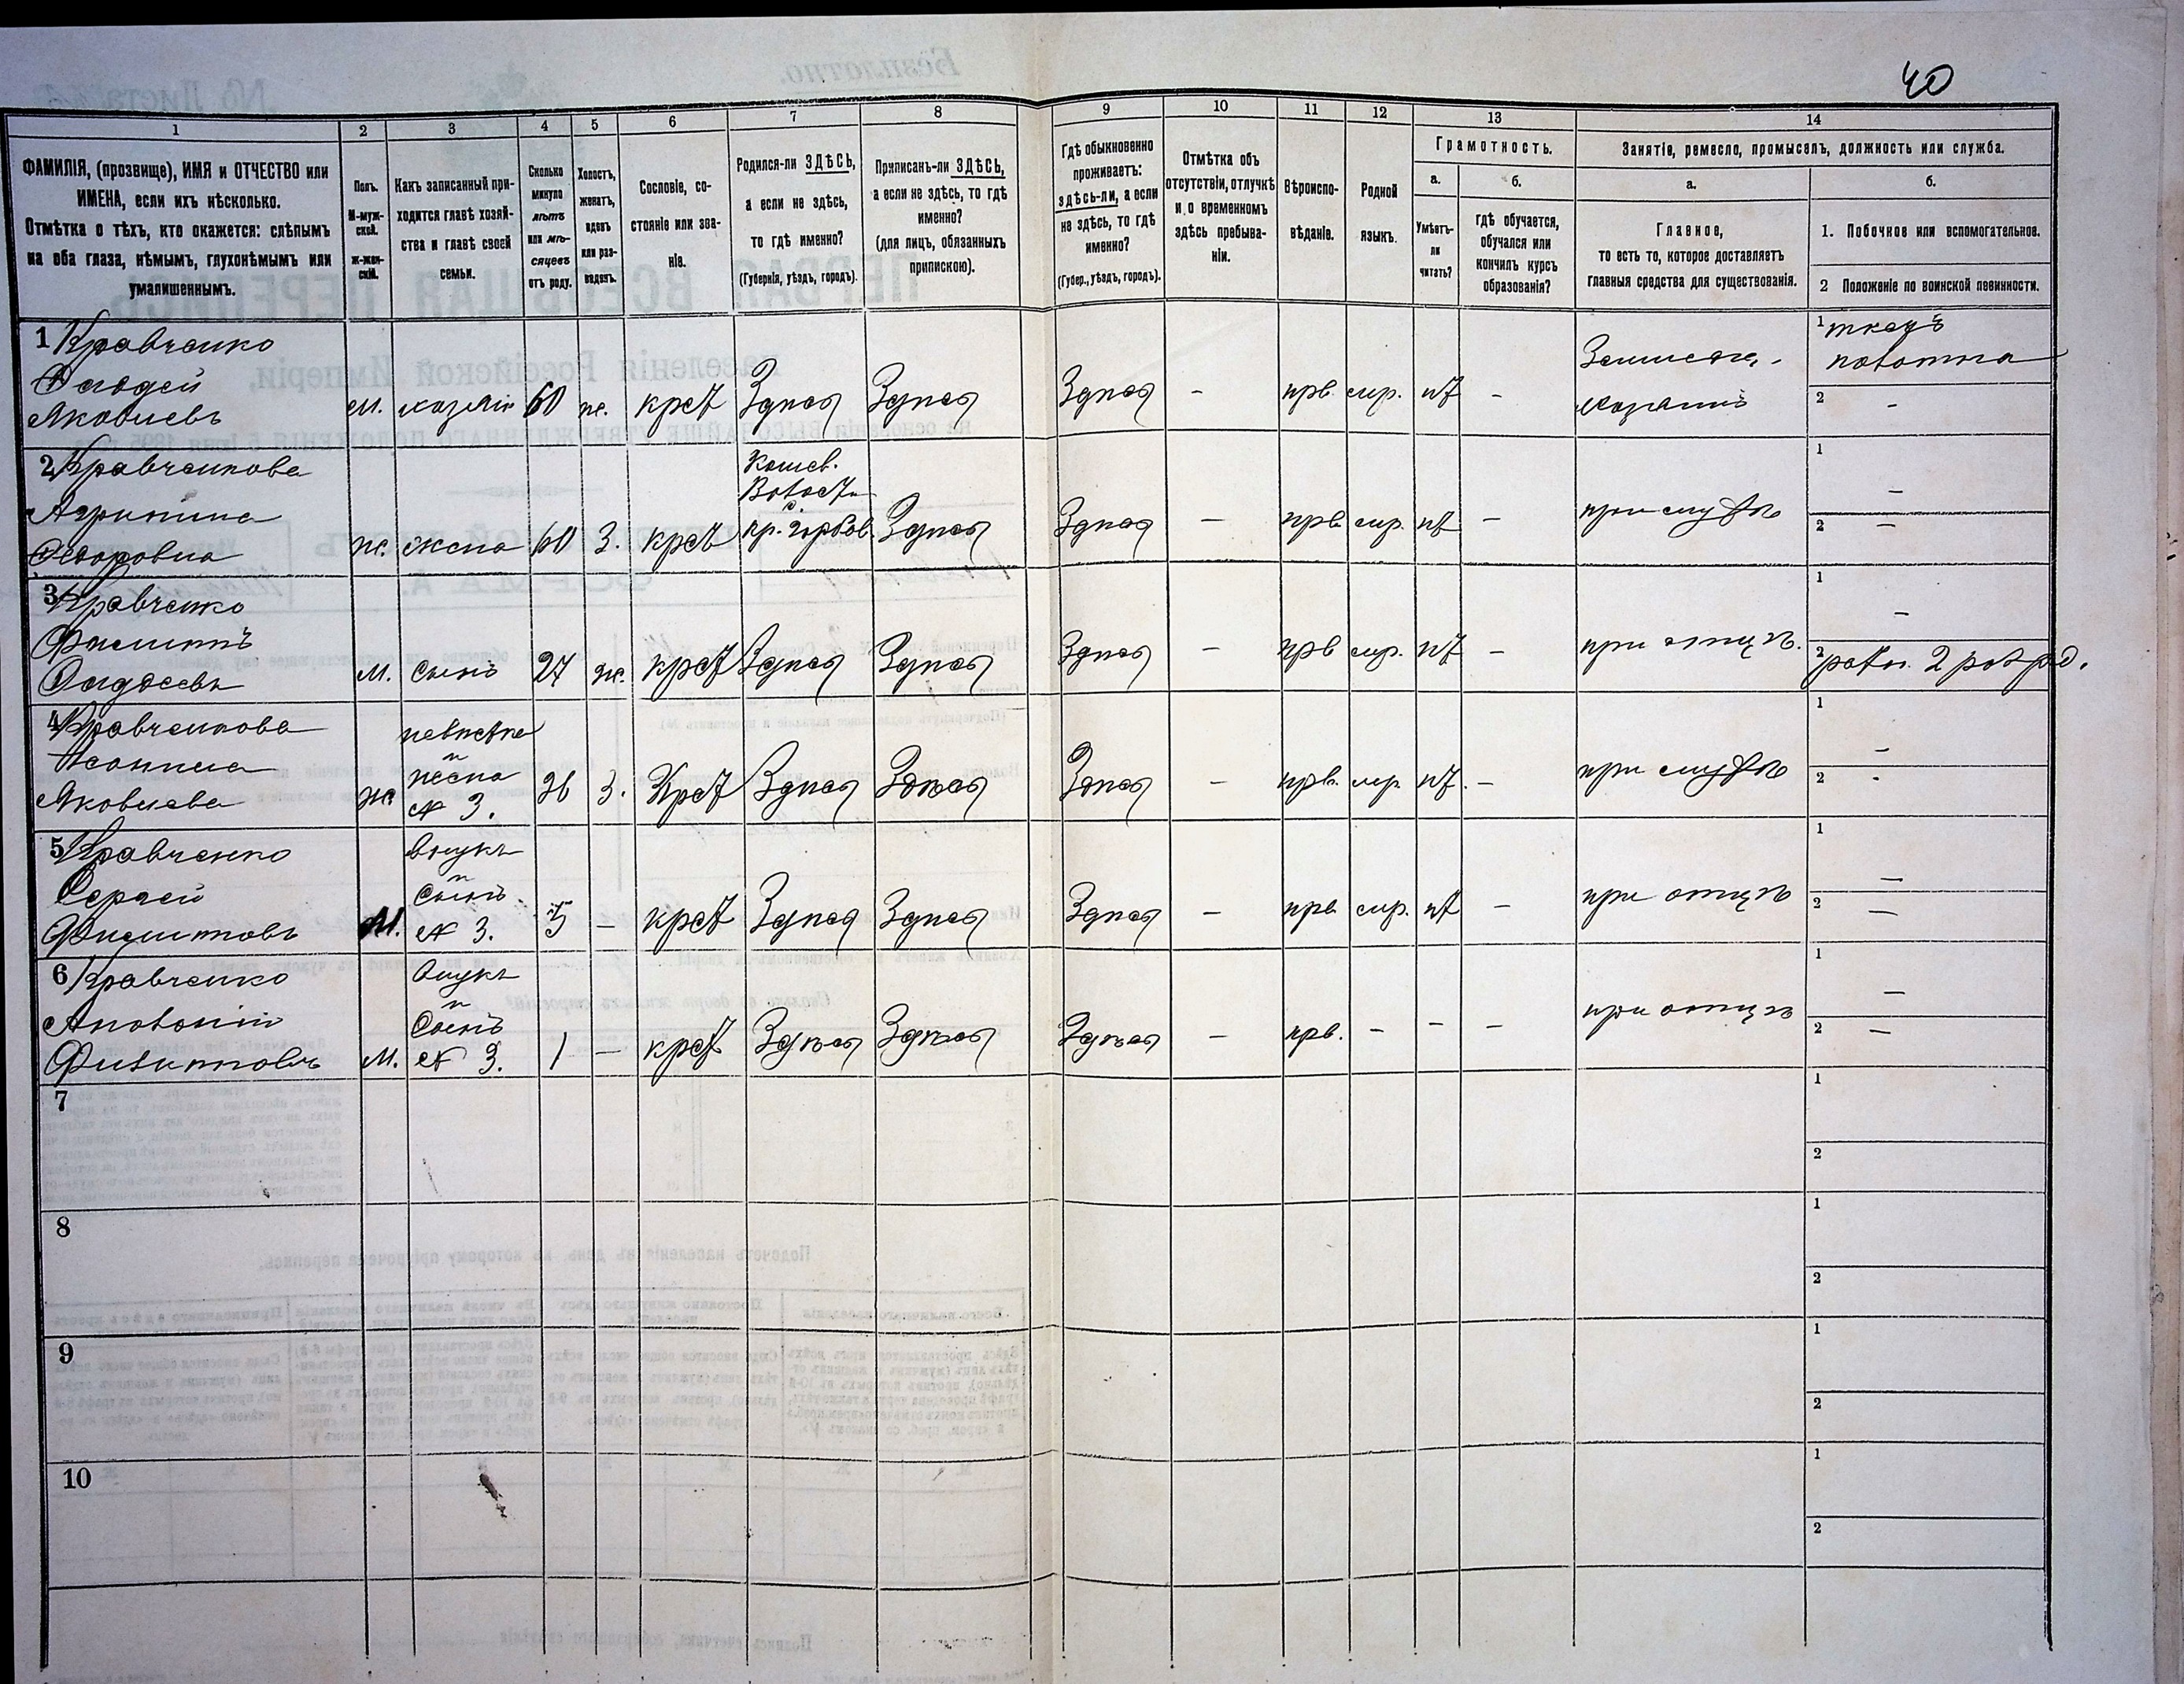 40
1
2
3
4
5
6
7
8
9
10
11
12
13
14
ФАМИЛІЯ, (прозвище), ИМЯ и ОТЧЕСТВО или
ИМЕНА, если ихъ нѣсколько.
Отмѣтка о тѣхъ, кто окажется: слѣпымъ
на оба глаза, нѣмымъ, глухонѣмымъ или
умалишеннымъ.
Полъ.
М-муж-
ской.
ж-жен-
скій.
Какъ записанный при-
ходится главѣ хозяй-
ства и главѣ своей
семьи.
Сколько
минуло
лѣтъ
или мѣ-
сяцевъ
отъ роду.
Холостъ,
женатъ,
вдовъ
или раз-
веденъ.
Сословіе, со-
стояніе или зва-
ніе.
Родился-ли ЗДѢСЬ,
а если не здѣсь,
то гдѣ именно?
(Губернія, уѣздъ, городъ).
Приписанъ-ли ЗДѢСЬ,
а если не здѣсь, то гдѣ
именно?
(для лицъ, обязанныхъ
припискою).
Гдѣ обыкновенно
проживаетъ:
здѣсь-ли, а если
не здѣсь, то гдѣ
именно?
(Губер., уѣздъ, городъ).
Отмѣтка объ
отсутствіи, отлучкѣ
и о временномъ
здѣсь пребыва-
ніи.
Вѣроиспо-
вѣданіе.
Родной
языкъ.
Грамотность.
а.
Умѣетъ-
ли
читать?
б.
гдѣ обучается,
обучался или
кончилъ курсъ
образованія?
Занятіе, ремесло, промыселъ, должность или служба.
а.
Главное,
то есть то, которое доставляетъ
главныя средства для существованія.
б.
1. Побочное или вспомогательное.
2 Положеніе по воинской повинности.
1 Кравченко
Фадей
Яковлевъ
м. хозяинъ 60 ж. крест Здѣсь Здѣсь Здѣсь - прв. мр. нѣт -
хозяинъ
1 ткачъ
полотна
2 -
2 Кравченкова
Агрипина
Федоровна
ж. жена 60 З. крест
Кошев.
Волости
Здѣсь Здѣсь - прв. мр. нѣт - при мужѣ
1 -
2 -
3 Кравченко
Филиппъ
Фадѣевъ
М. сынъ 27 ж. крест Здѣсь Здѣсь Здѣсь - прв мр. нѣт - при отцѣ.
1 -
2 ратн. 2 разряд.
4 Кравченкова
Яковлева
ж
невѣстка
и
жена
№ 3.
26 З. Крест Здѣсь Здѣсь Здѣсь - прв. мр. нѣт. - при мужѣ
1 -
2 -
5 Кравченко
Сергей
Филиповъ
М.
внукъ
и
сынъ
№ 3.
5 - крест Здѣсь Здѣсь Здѣсь - прв. мр. нѣт - при отцѣ
1 -
2 -
6 Кравченко
Филиповъ
М.
внукъ
и
Сынъ
№ 3.
1 - крест Здѣсь Здѣсь Здѣсь - прв. - - - при отцѣ
1 -
2 -
7
1
2
8
1
2
9
1
2
10
1
2